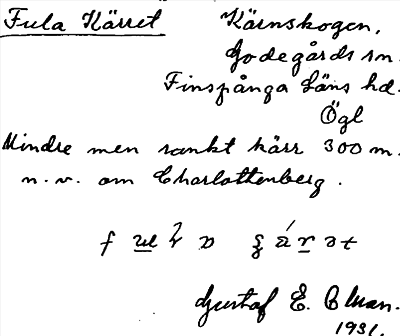 Fula Kärret Kärnskogen,
Godegårds sn.
Finspånga Läns hd.
Ögl
Mindre men sankt kärr 300 m.
n.v. om Charlottenberg.
Gustaf E. Elman.
1931.